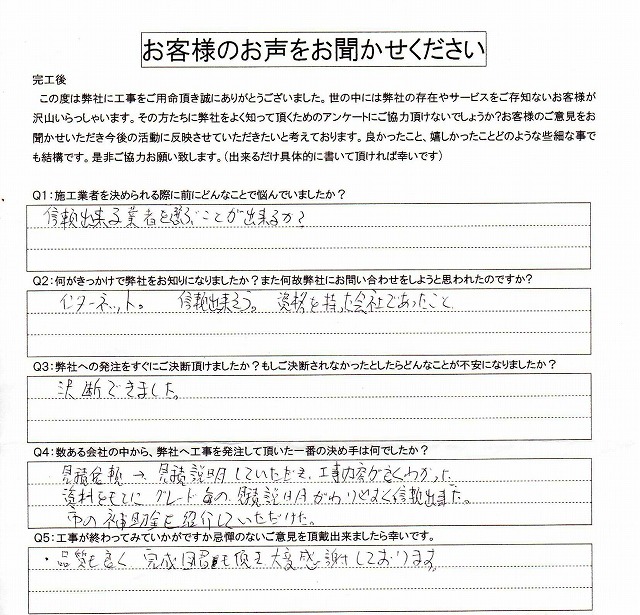 お客様のお声をお聞かせください
完工後
この度は弊社に工事をご用命頂き誠にありがとうございました。世の中には弊社の存在やサービスをご存知ないお客様が
沢山いらっしゃいます。その方たちに弊社をよく知って頂くためのアンケートにご協力頂けないでしょうか?お客様のご意見をお
聞かせいただき今後の活動に反映させていただきたいと考えております。良かったこと、嬉しかったことどのような些細な事で
も結構です。是非ご協力お願い致します。(出来るだけ具体的に書いて頂ければ幸いです)
Q1:施工業者を決められる際に前にどんなことで悩んでいましたか?
信頼出来る業者を選ぶことが出来るか?
Q2:何がきっかけで弊社をお知りになりましたか?また何故弊社にお問い合わせをしようと思われたのですか?
インターネット。 信頼出来そう。 資格を持った会社であったこと
Q3:弊社への発注をすぐにご決断頂けましたか?もしご決断されなかったとしたらどんなことが不安になりましたか?
決断できました。
Q4:数ある会社の中から、弊社へ工事を発注して頂いた一番の決め手は何でしたか?
見積依頼 → 見積説明していただき、工事内容が良くわかった
資料をもとに グレード毎の 見積説明がわかりやすく信頼出来ました。
市の補助金を紹介していただけた。
Q5:工事が終わってみていかがですか忌憚のないご意見を頂戴出来ましたら幸いです。
・品質も良く 完成図書も頂き 大変感謝しております。